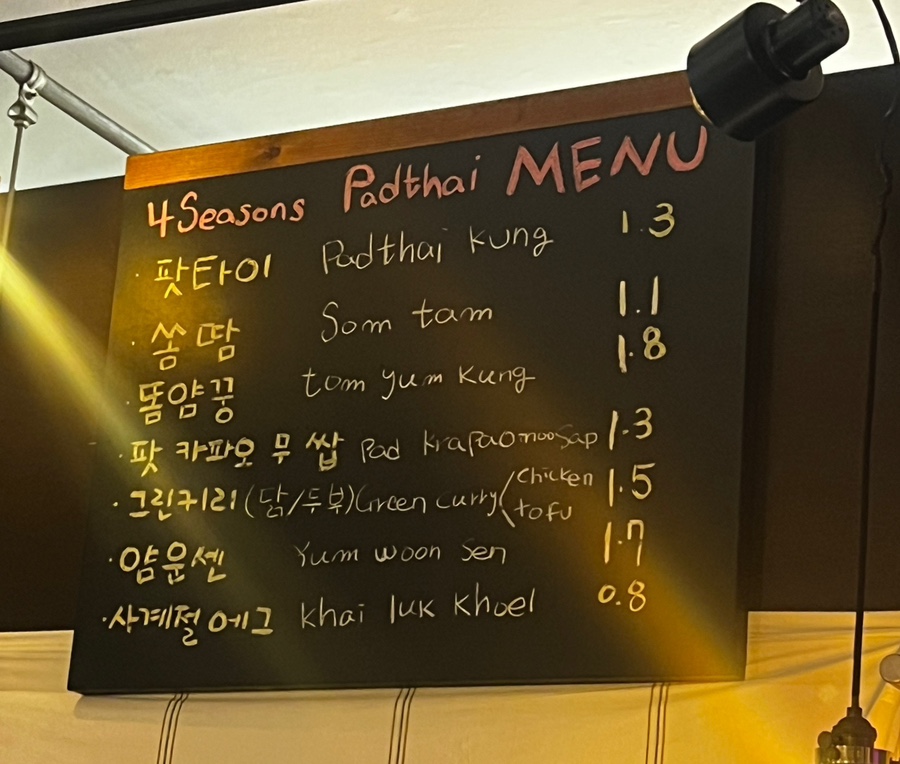 4Seasons Padthai MENU
· 팟타이 Padthai kung 1.3
· 쏨땀 Som tam 1.1
· 똠얌꿍 tom yum kung 1.8
· 팟 카파오 무 쌉 Pad krapaomoosap 1.3
· 그린커리 (닭/두부) Green curry/chicken \tofu 1.5
· 얌운센 Yum woon Sen 1.7
· 사계절 에그 khai luk khoel 0.8